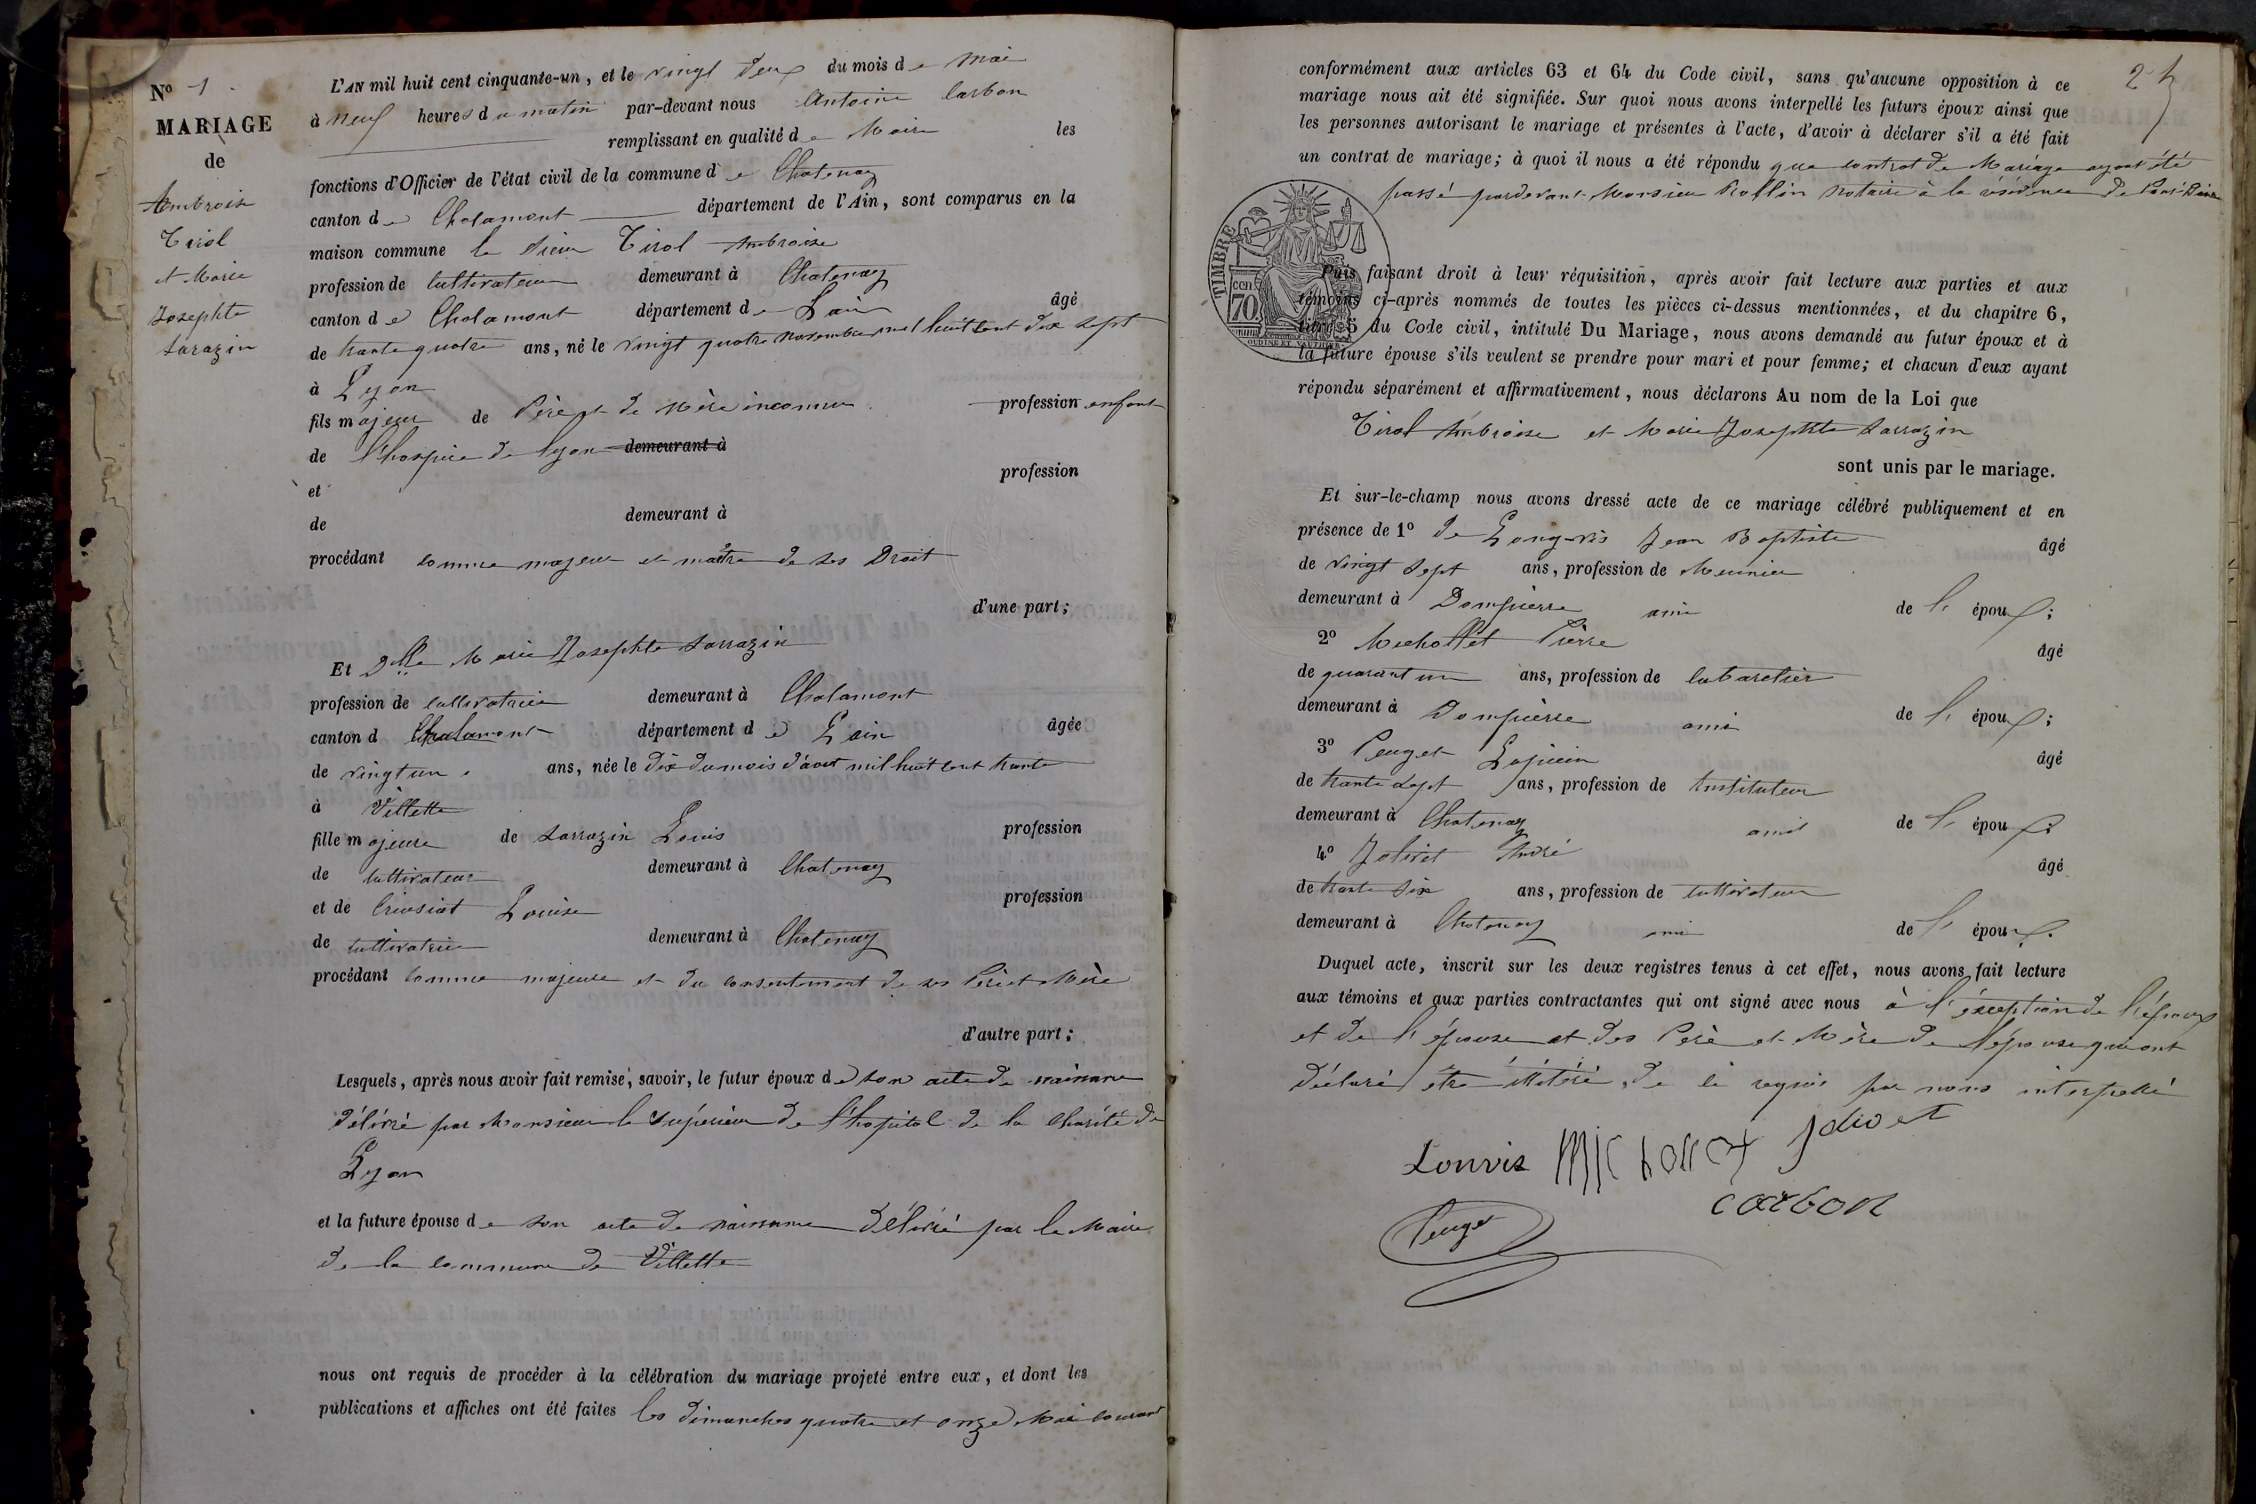 No 1
MARIAGE
de
Ambroise
Tirol
et Marie
Josephte
Sarazin
L'AN mil huit cent cinquante-un, et le vingt deux du mois de Mai
à neuf heures du matin par-devant nous Antoine Carbon
remplissant en qualité de Maire les
fonctions d'Officier de l'état civil de la commune de Chatenay
canton de Chalamont département de l'Ain, sont comparus en la
maison commune le Sieur Tirol Ambroise
profession de Cultivateur demeurant à Chatenay
canton de Chalamont département de L'ain âgé
de trante quatre ans, né le vingt quatre novembre mil huit cent dix sept
à Lyon
fils majeur de Père et de Mère inconnu profession enfant
de l'hospice de lyon demeurant à
et profession
de demeurant à
procédant comme majeur et maître de ses Droit
d'une part;
Et Dlle Marie Josephte Sarrazin
profession de cultivatrice demeurant à Chalamont
canton d Chalamont département de L'ain âgée
de vingt un ans, née le dix du mois d'aout mil huit cent trante
à Villette
fille majeure de Sarrazin Louis profession
de cultivateur demeurant à Chatenay
et de Louise profession
de cultivatrice demeurant à Chatenay
procédant comme majeure et du consentement de ses Père et Mère
d'autre part;
Lesquels, après nous avoir fait remise, savoir, le futur époux de son acte de naissance
délivré par Monsieur le Supérieur de l'hopital de la Charité de
Lyon
et la future épouse de son acte de naissance délivré par le Maire
de la commune de Villette
nous ont requis de procéder à la célébration du mariage projeté entre eux, et dont les
publications et affiches ont été faites les dimanches quatre et onze Mai courant
2
conformément aux articles 63 et 64 du Code civil, sans qu'aucune opposition à ce
mariage nous ait été signifiée. Sur quoi nous avons interpellé les futurs époux ainsi que
les personnes autorisant le mariage et présentes à l'acte, d'avoir à déclarer s'il a été fait
un contrat de mariage; à quoi il nous a été répondu que contrat de Mariage ayant été
passé pardevant Monsieur Rollin Notaire à la residence de
TIMBRE
70
Puis faisant droit à leur réquisition, après avoir fait lecture aux parties et aux
témoins ci-après nommés de toutes les pièces ci-dessus mentionnées, et du chapitre 6,
titre 5 du Code civil, intitulé Du Mariage, nous avons demandé au futur époux et à
la future épouse s'ils veulent se prendre pour mari et pour femme; et chacun d'eux ayant
répondu séparément et affirmativement, nous déclarons Au nom de la Loi que
Tirol Ambroise et Marie Josephte Sarrazin
sont unis par le mariage.
Et sur-le-champ nous avons dressé acte de ce mariage célébré publiquement et en
présence de 1o de Long-vis Jean Baptiste âgé
de vingt sept ans, profession de Meunier
demeurant à Dompierre ami de l' époux;
2o Michollet Pierre âgé
de quarant un ans, profession de Cabaretier
demeurant à Dompierre ami de l' époux;
3o Peuget Lupicin âgé
de trante sept ans, profession de Instituteur
demeurant à Chatenay ami de l' époux;
4o Jolivet André âgé
de trante six ans, profession de cultivateur
demeurant à Chatenay ami de l' époux.
Duquel acte, inscrit sur les deux registres tenus à cet effet, nous avons fait lecture
aux témoins et aux parties contractantes qui ont signé avec nous à l'éxception de l'époux
et de l'épouse et des Père et Mère de l'épouse qui ont
déclaré être illitéré, de ce requis par nous interpellé
Lonvis Michollet Jolivet
Carbon
Peuget